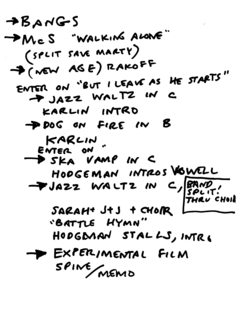 → BANGS
→ McS "WALKING ALONE"
(SPLIT SAVE MARTY)
→ (NEW AGE) RAKOFF
ENTER ON "BUT I LEAVE AS HE STARTS"
→ JAZZ WALTZ IN C
KARLIN INTRO
→ DOG ON FIRE IN B
KARLIN
ENTER ON "
→ SKA VAMP IN C
HODGEMAN INTROS VOWELL
→ JAZZ WALTZ IN C,
BAND SPLIT!
THRU CHOIR
SARAH + J+J + CHOIR
"BATTLE HYMN"
HODGMAN STALLS, INTRO
→ EXPERIMENTAL FILM
SPINE/MEMO